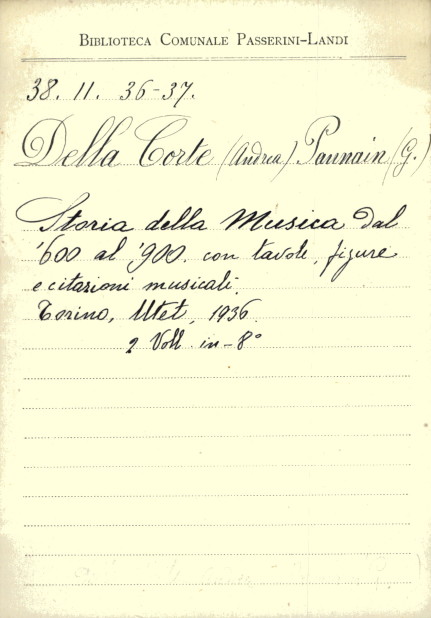 BIBLIOTECA COMUNALE PASSERINI-LANDI
38. 11. 36-37.
Della Corte (Andrea) Pannain (G.)
Storia della Musica dal
'600 al '900. con tavole, figure
e citazioni musicali.
Torino, Utet, 1936.
2 Voll. in-8°